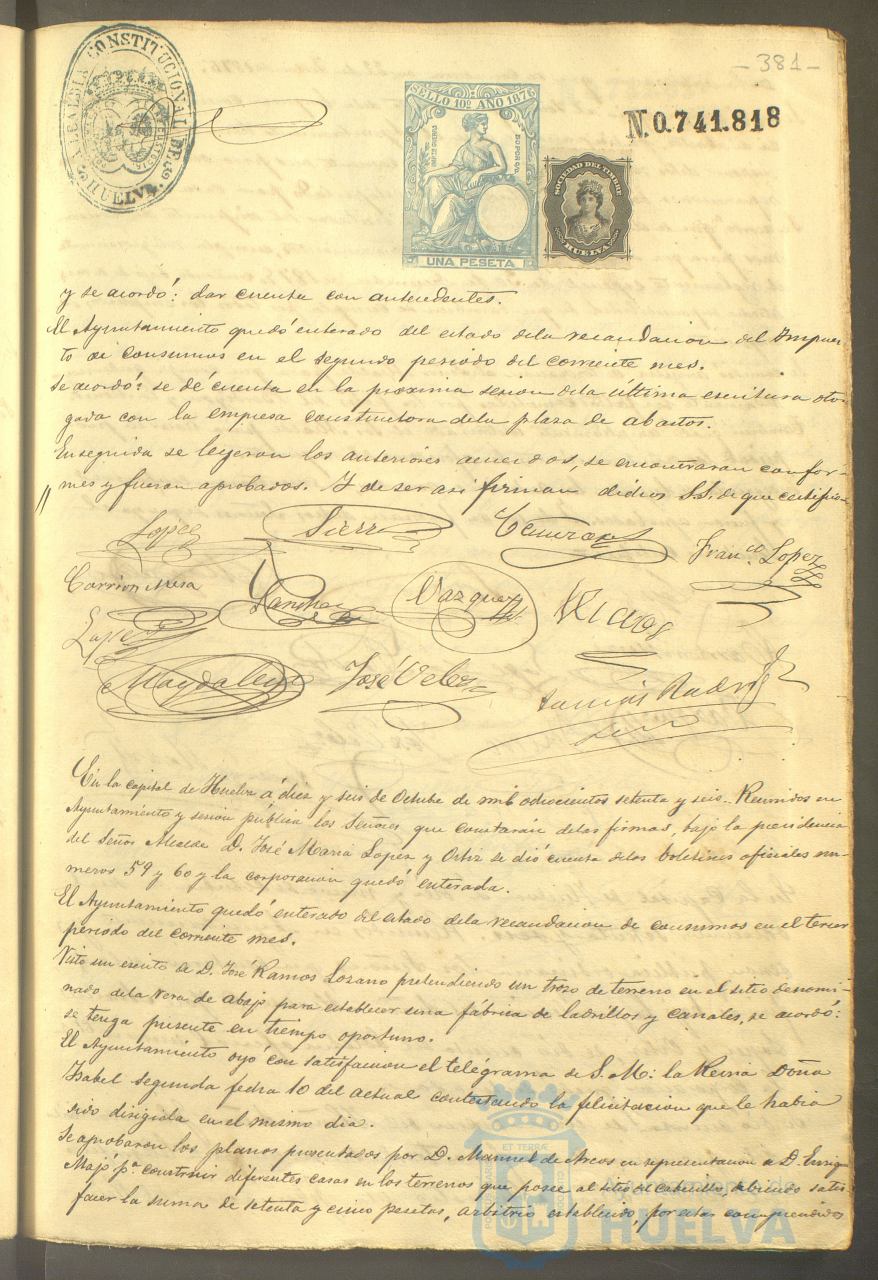 - 381 -
ALCALDIA CONSTITUCIONAL DE HUELVA.
SELLO 10º AÑO 1876
UNA PESETA
SOCIEDAD DEL TIMBRE
HUELVA
N. 0.741.818
y se acordó: dar cuenta con antecedentes.
El Ayuntamiento quedó enterado del estado dela recaudacion del Impues-
to de Consumos en el segundo periodo del corriente mes.
Se acordó: se dé cuenta en la próxima sesion dela última escritura otor-
gada con la empresa constructora dela plaza de abastos.
Enseguida se leyeron los anteriores acuerdos, se encontraron confor-
mes y fueron aprobados. Y de ser asi firman dichos S.S. de que certifico
Lopez
Sierra
Franco. Lopez
Carrion Mesa
Sanchez
Vazquez
Lopez
José Velez
Tomás Rodrig
En la capital de Huelva á diez y seis de Octubre de mil ochocientos setenta y seis. Reunidos en
Ayuntamiento y sesion pública los Señores que constarán delas firmas, bajo la presidencia
del Señor Alcalde D. José Maria Lopez y Ortiz se dió cuenta delos boletines oficiales nu-
meros 59 y 60 y la corporacion quedó enterada.
El Ayuntamiento quedó enterado del estado dela recaudacion de consumos en el tercer
periodo del corriente mes.
Visto un escrito de D. José Ramos Lozano pretendiendo un trozo de terreno en el sitio denomi-
nado dela Vera de abajo para establecer una fábrica de ladrillos y canales, se acordó:
se tenga presente en tiempo oportuno.
El Ayuntamiento oyó con satisfacion el telégrama de S. M: la Reina Doña
Isabel segunda fecha 10 del actual contestando la felicitacion que le habia
sido dirigida en el mismo dia.
Se aprobaron los planos presentados por D. Manuel de Arcos en representacion de D. Enrique
pa. construir diferentes casas en los terrenos que posee al sitio debiendo satis-
facer la suma de setenta y cinco pesetas, arbitrio establecido, por estar comprendidos
Ayuntamiento de
HUELVA